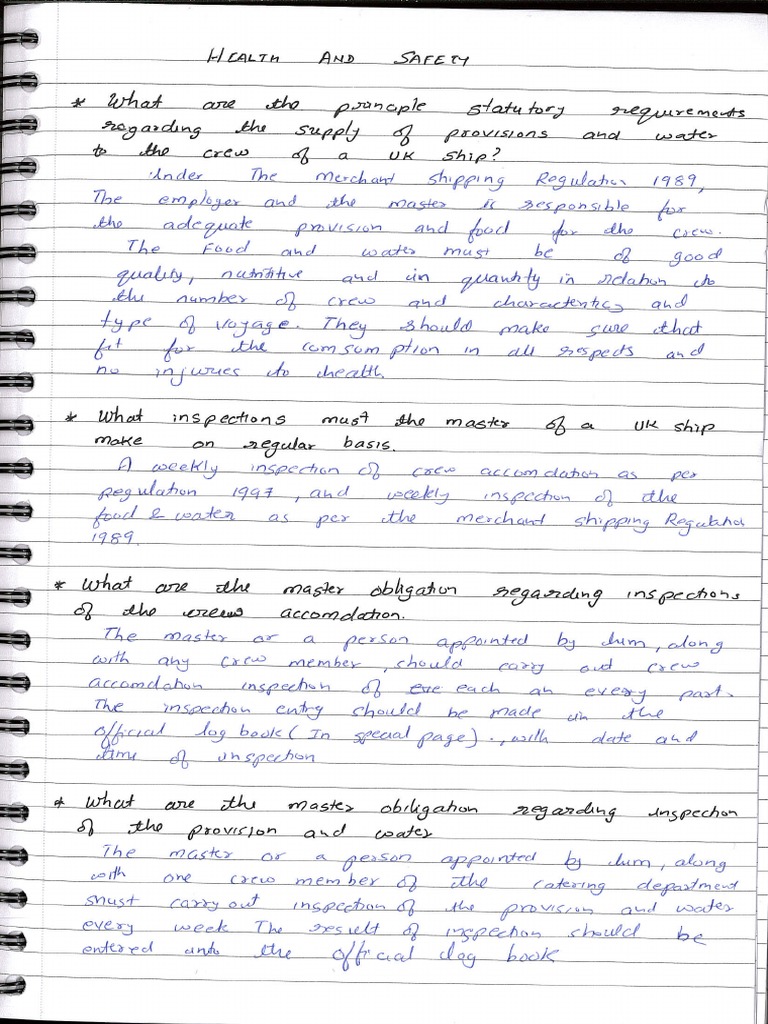 HEALTH AND SAFETY
* What are the principle statutory requirements
regarding the supply of provisions and water
to the crew of a UK ship?
Under The merchant shipping Regulation 1989,
The employer and the master is responsible for
the adequate provision and food for the crew.
The Food and water must be of good
quality, nutritive and in quantity in relation to
the number of crew and characteristics and
type of voyage. They should make sure that
fit for the comsumption in all respects and
no injuries to health.
* What inspections must the master of a UK ship
make on regular basis.
A weekly inspection of crew accomdation as per
Regulation 1997, and weekly inspection of the
food & water as per the merchant shipping Regulation
1989.
* What are the master obligation regarding inspections
of the crews accomdation.
The master or a person appointed by him, along
with any crew member, should carry out crew
accomdation inspection of each an every part.
The inspection entry should be made in the
official log book (In special page)., with date and
time of inspection
* What are the master obiligation regarding inspection
of the provision and water
The master or a person appointed by him, along
with one crew member of the catering department
must carry out inspection of the provision and water
every week The result of inspection should be
entered into the official log book